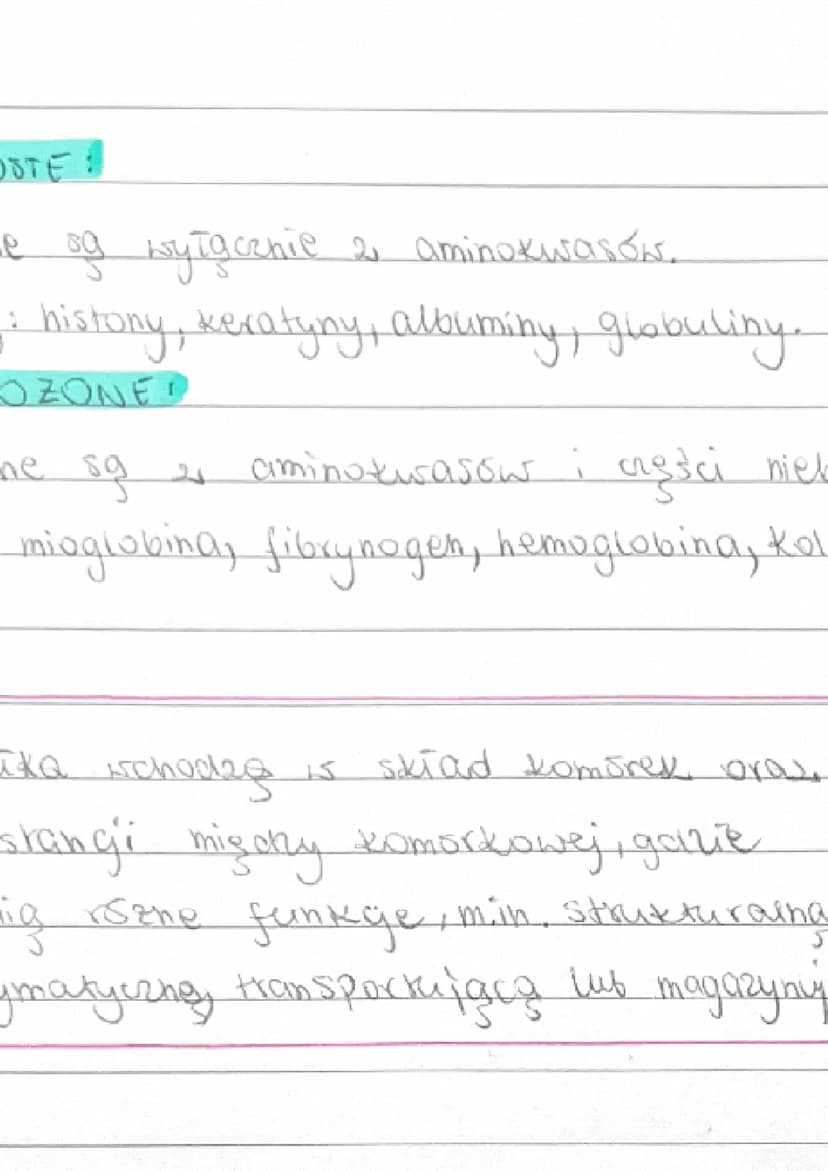 OSTE:
e są wyłącznie z aminokwasów.
: histony, keratyny, albuminy, globuliny.
OZONE:
ne są z aminokwasów i części nieb
mioglobina, fibrynogen, hemoglobina, kol
ika wchodzą w skład komórek oraz
stangi między komórkowej, gdzie
ią różne funkcje, m.in. strukturalną
ymatyczną, transportującą lub magazynuj